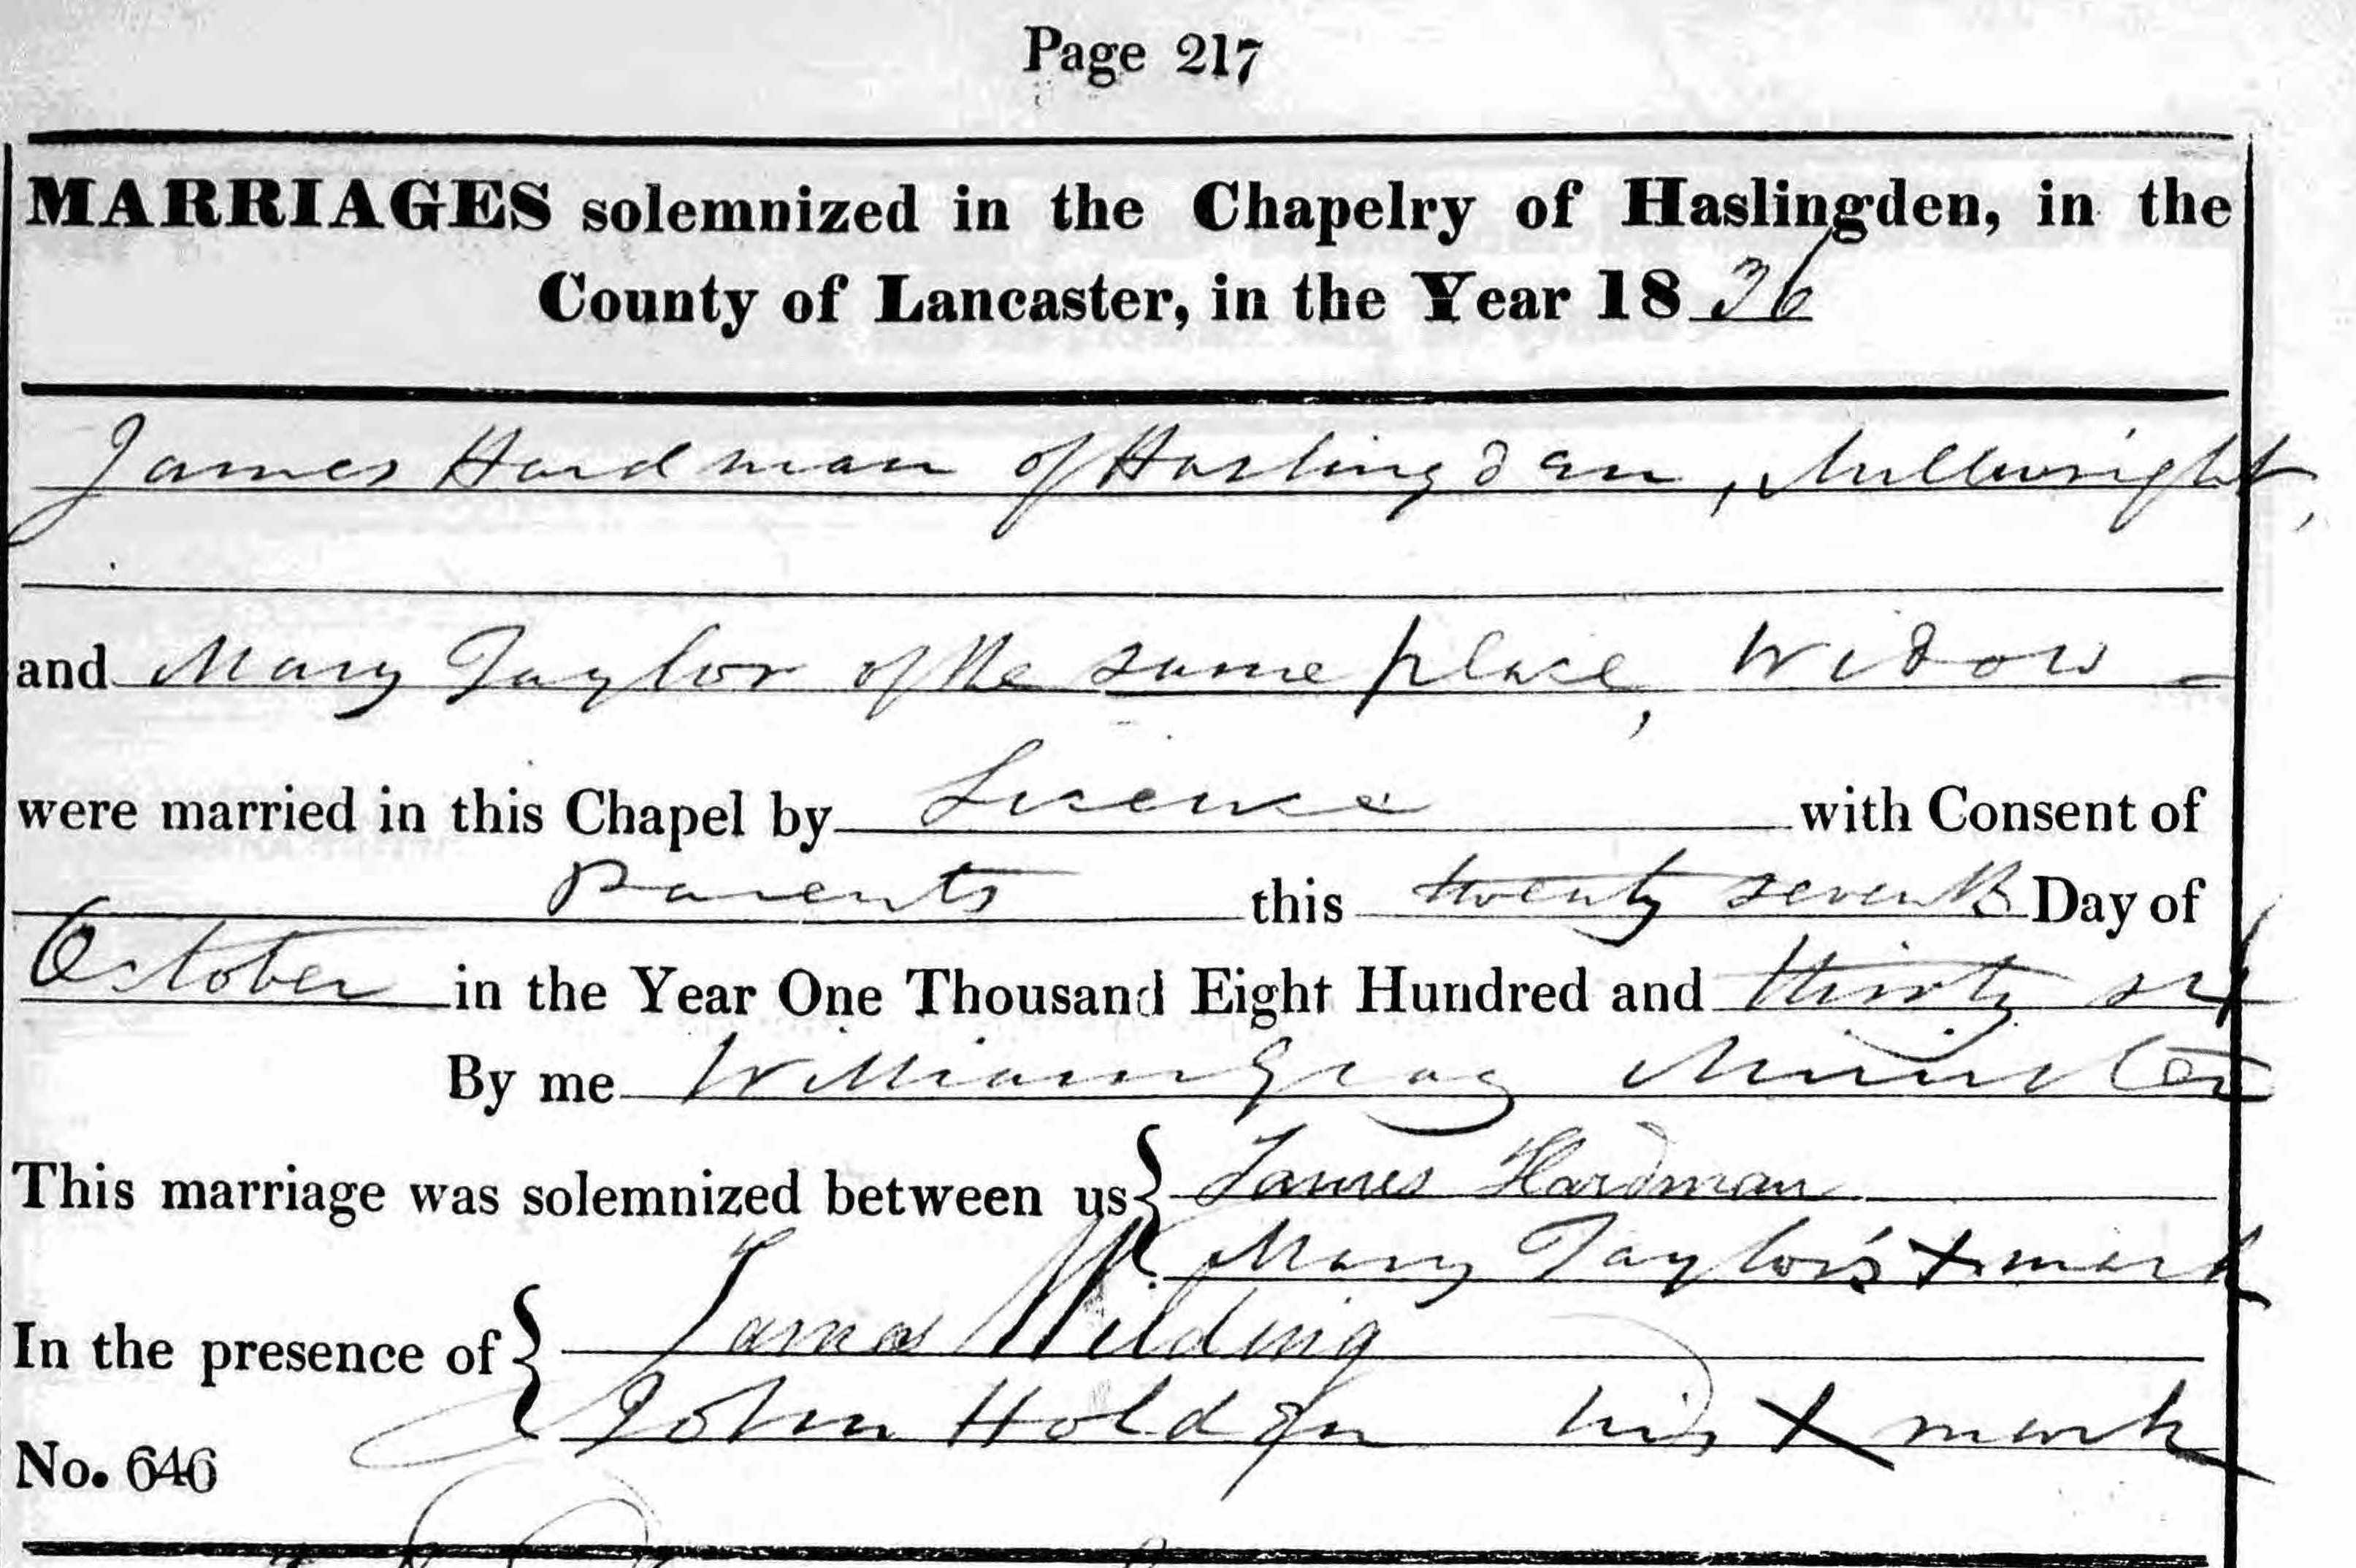 Page 217
MARRIAGES solemnized in the Chapelry of Haslingden, in the
County of Lancaster, in the Year 1836
James Hardman of Haslingden, Millwright,
and Mary Taylor of the same place, Widow
were married in this Chapel by Licence with Consent of
Parents this twenty seventh Day of
October in the Year One Thousand Eight Hundred and thirty six
By me William Gray Minister
This marriage was solemnized between us { James Hardman
Mary Taylor's X mark
In the presence of { James Wilding
John Holden his X mark
No. 646